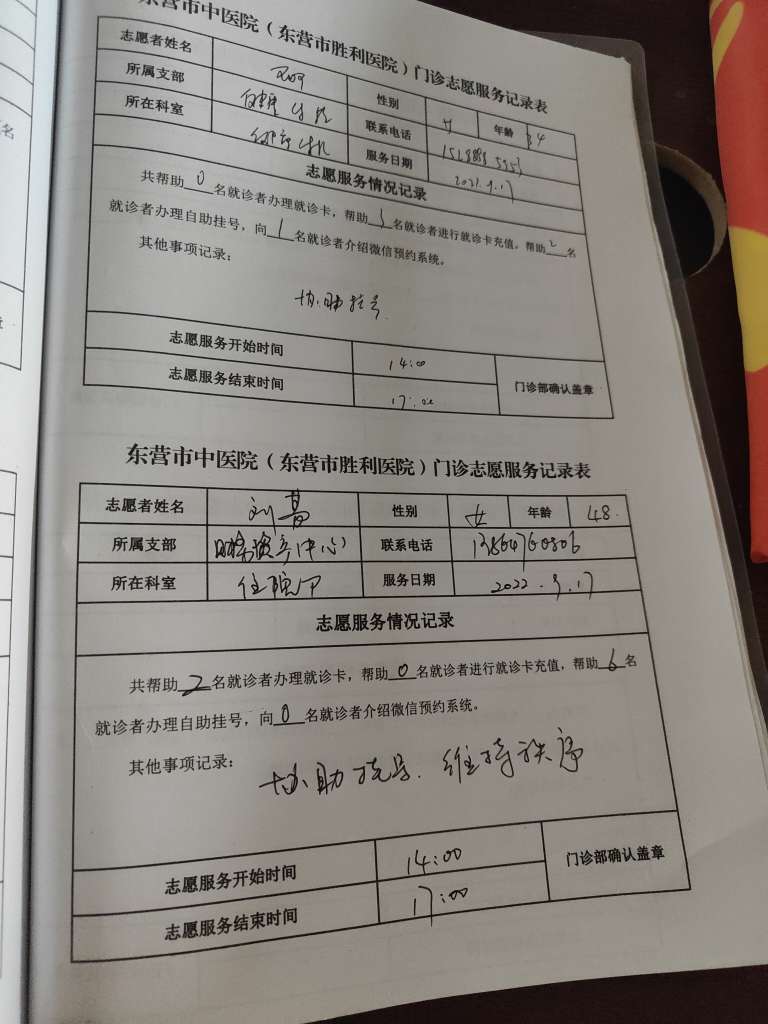 东营市中医院（东营市胜利医院）门诊志愿服务记录表
志愿者姓名 性别 女 年龄 34
所属支部 联系电话
所在科室 服务日期 2022.9.17
志愿服务情况记录
共帮助 0 名就诊者办理就诊卡，帮助 3 名就诊者进行就诊卡充值，帮助 2 名
就诊者办理自助挂号，向 1 名就诊者介绍微信预约系统。
其他事项记录：
协助挂号
志愿服务开始时间 14:00
志愿服务结束时间 17:00 门诊部确认盖章
东营市中医院（东营市胜利医院）门诊志愿服务记录表
志愿者姓名 刘 性别 女 年龄 48
所属支部 中心 联系电话 13864760806
所在科室 服务日期 2022.9.17
志愿服务情况记录
共帮助 2 名就诊者办理就诊卡，帮助 0 名就诊者进行就诊卡充值，帮助 6 名
就诊者办理自助挂号，向 0 名就诊者介绍微信预约系统。
其他事项记录：
协助挂号．维持秩序
志愿服务开始时间 14:00
志愿服务结束时间 17:00 门诊部确认盖章